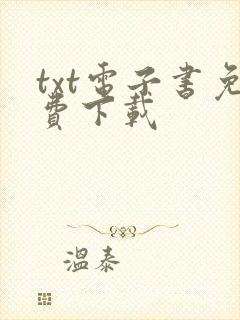 txt電子書免
費下載
溫泰